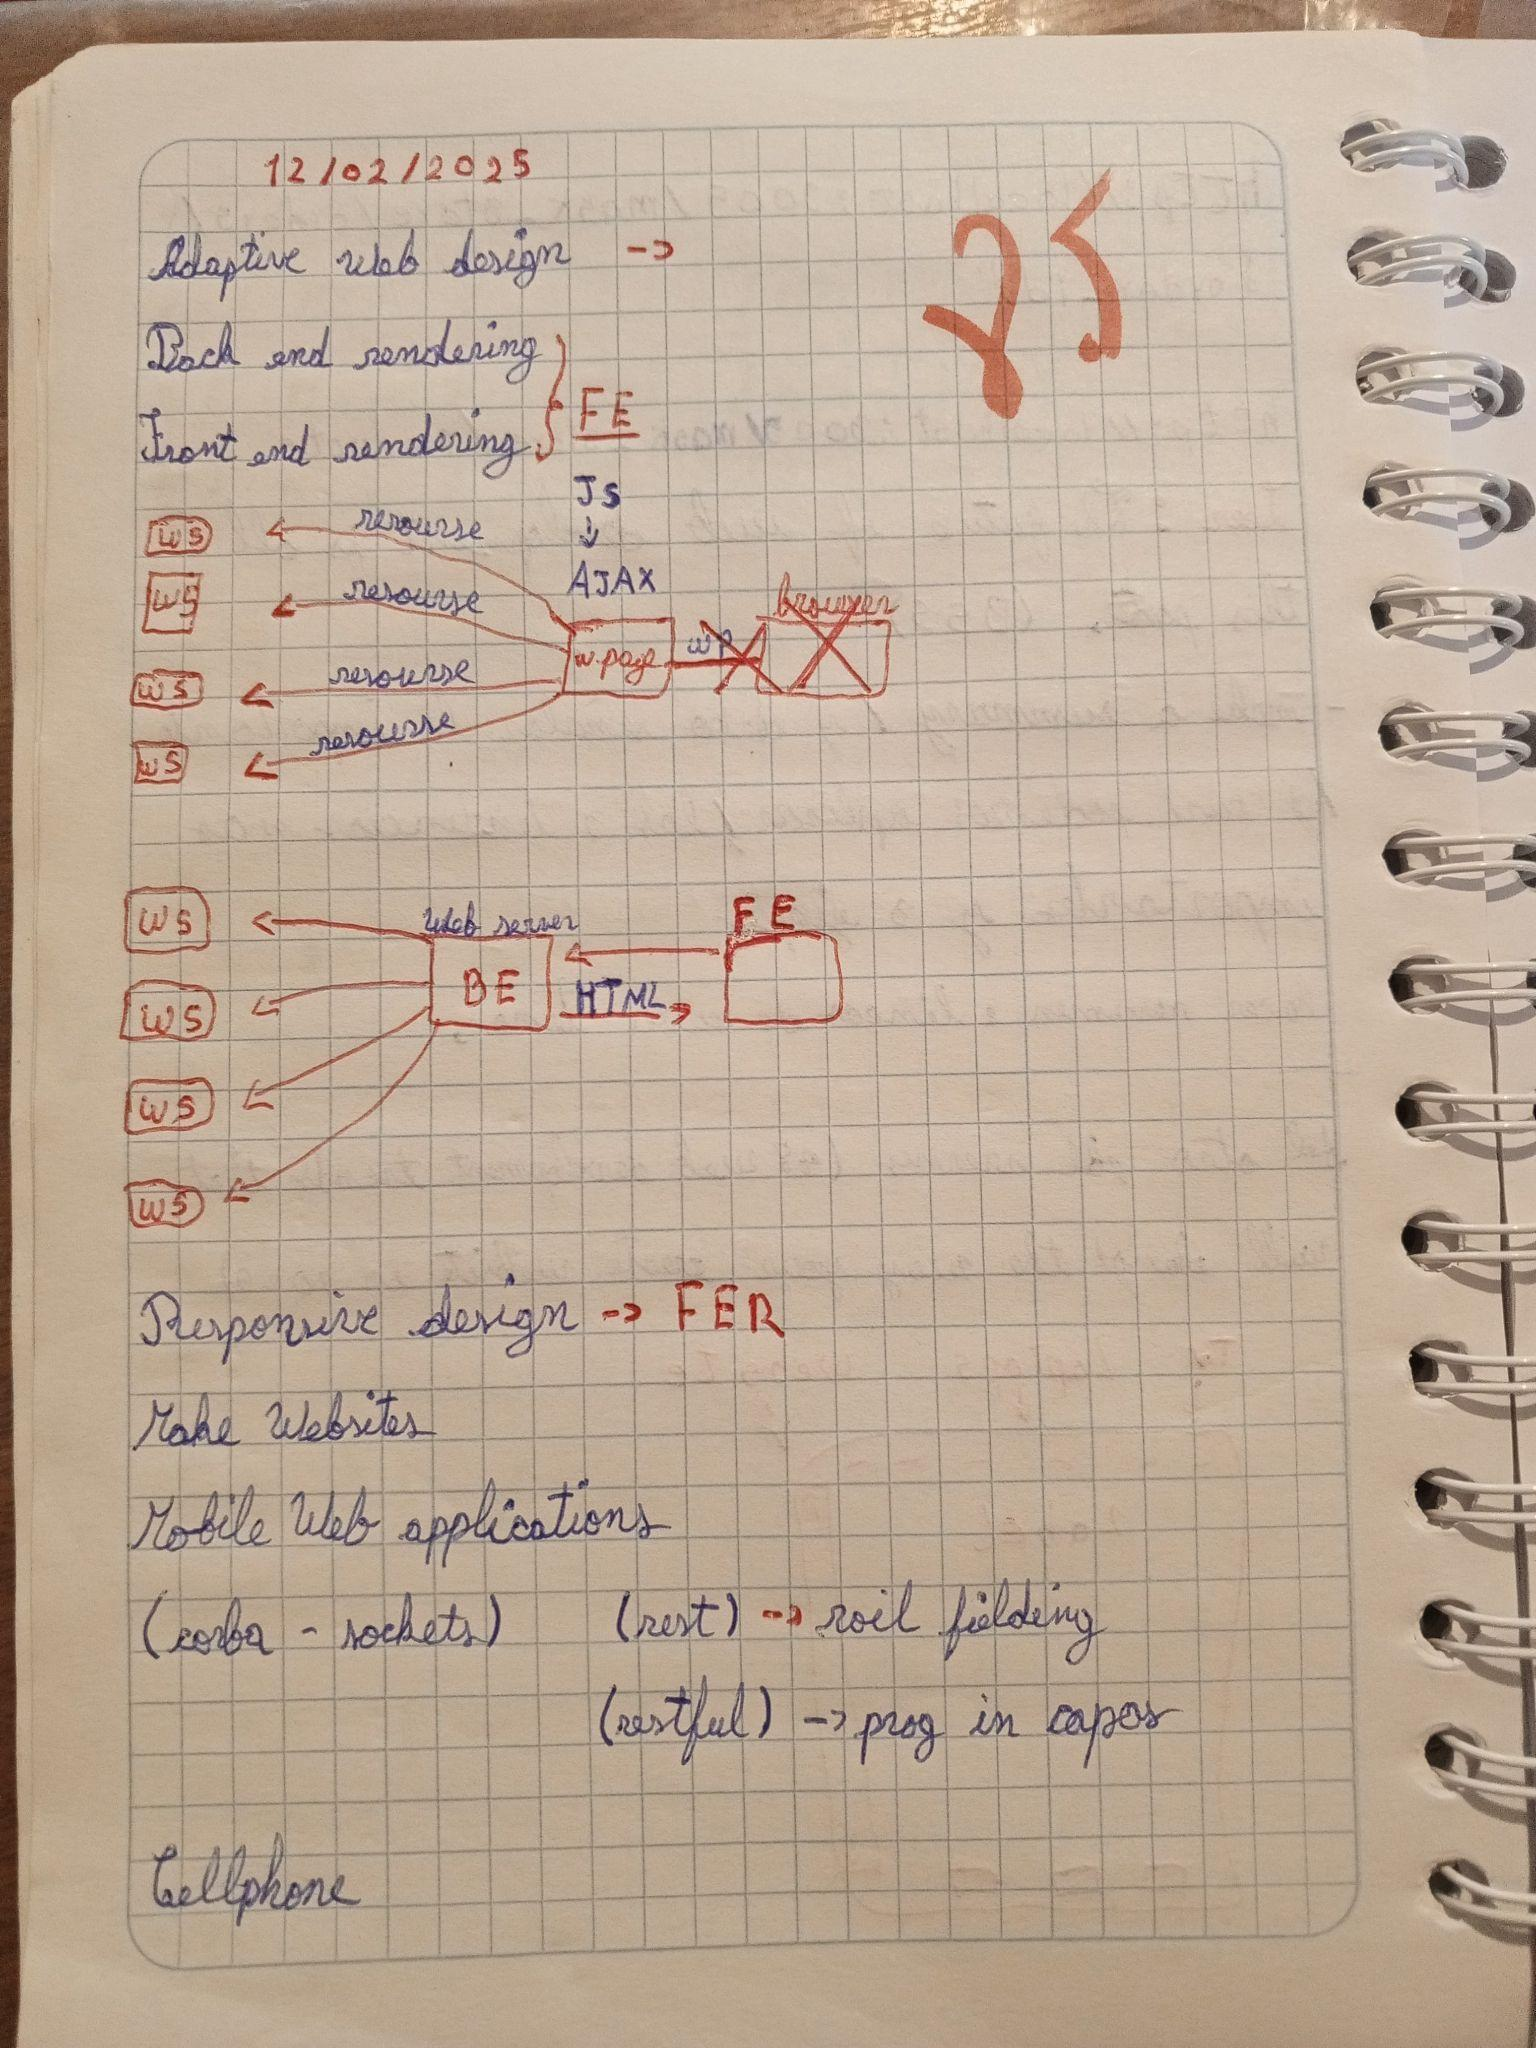 12/02/2025
25
Adaptive Web design ->
Back end rendering
FE
Front end rendering
JS
WS resourse
AJAX
WS resourse
browser
w.page wp
WS resourse
WS resourse
WS Web server FE
BE HTML
WS
WS
WS
Responsive design -> FER
Make Websites
Mobile Web applications
(corba - sockets) (rest) -> roil fielding
(restful) -> prog in capas
Cellphone